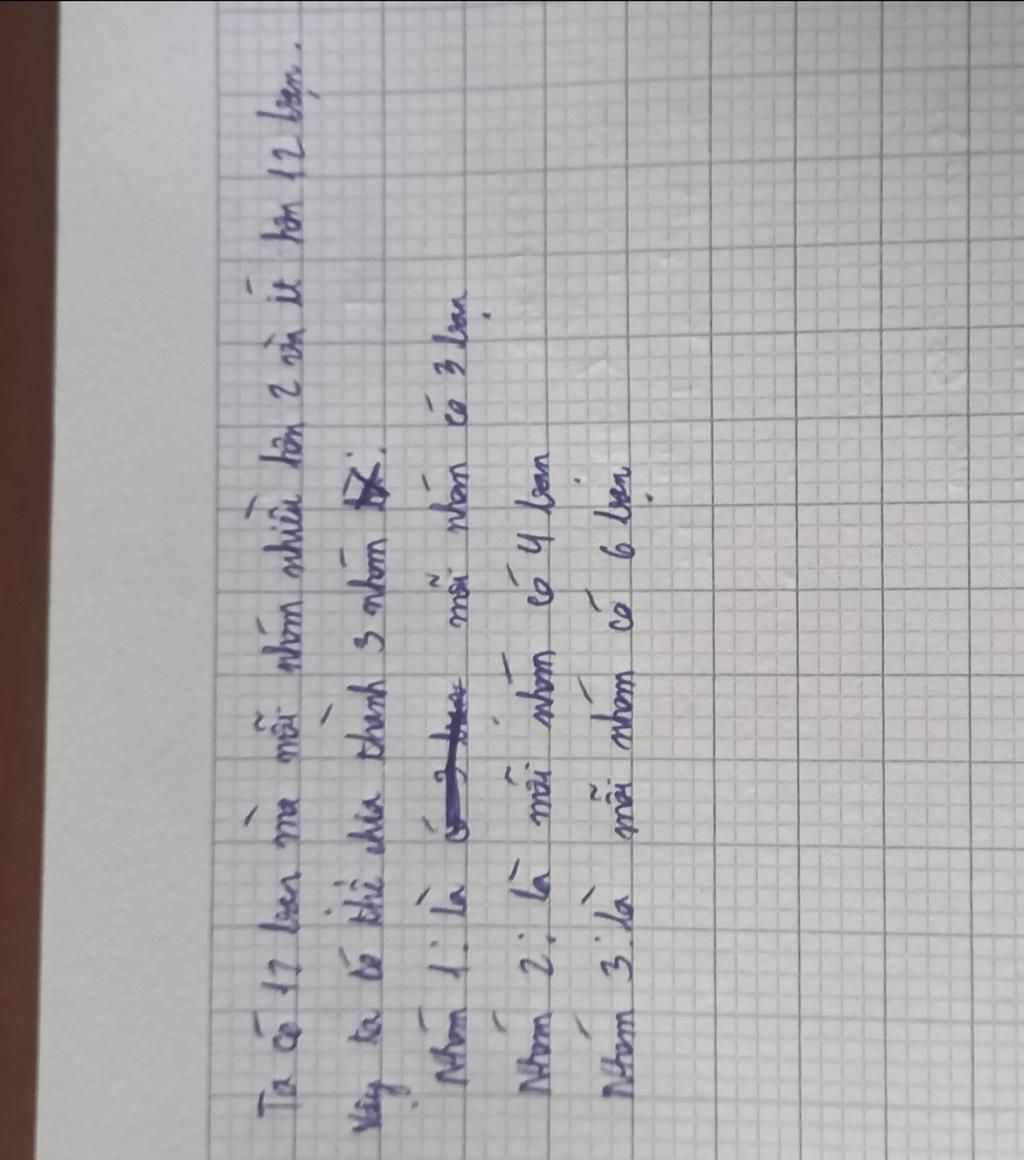 Ta có 12 bạn mà mỗi nhóm nhiều hơn 2 và ít hơn 12 bạn.
Vậy ta có thể chia thành 3 nhóm:
Nhóm 1: là mỗi nhóm có 3 bạn
Nhóm 2: là mỗi nhóm có 4 bạn
Nhóm 3: là mỗi nhóm có 6 bạn